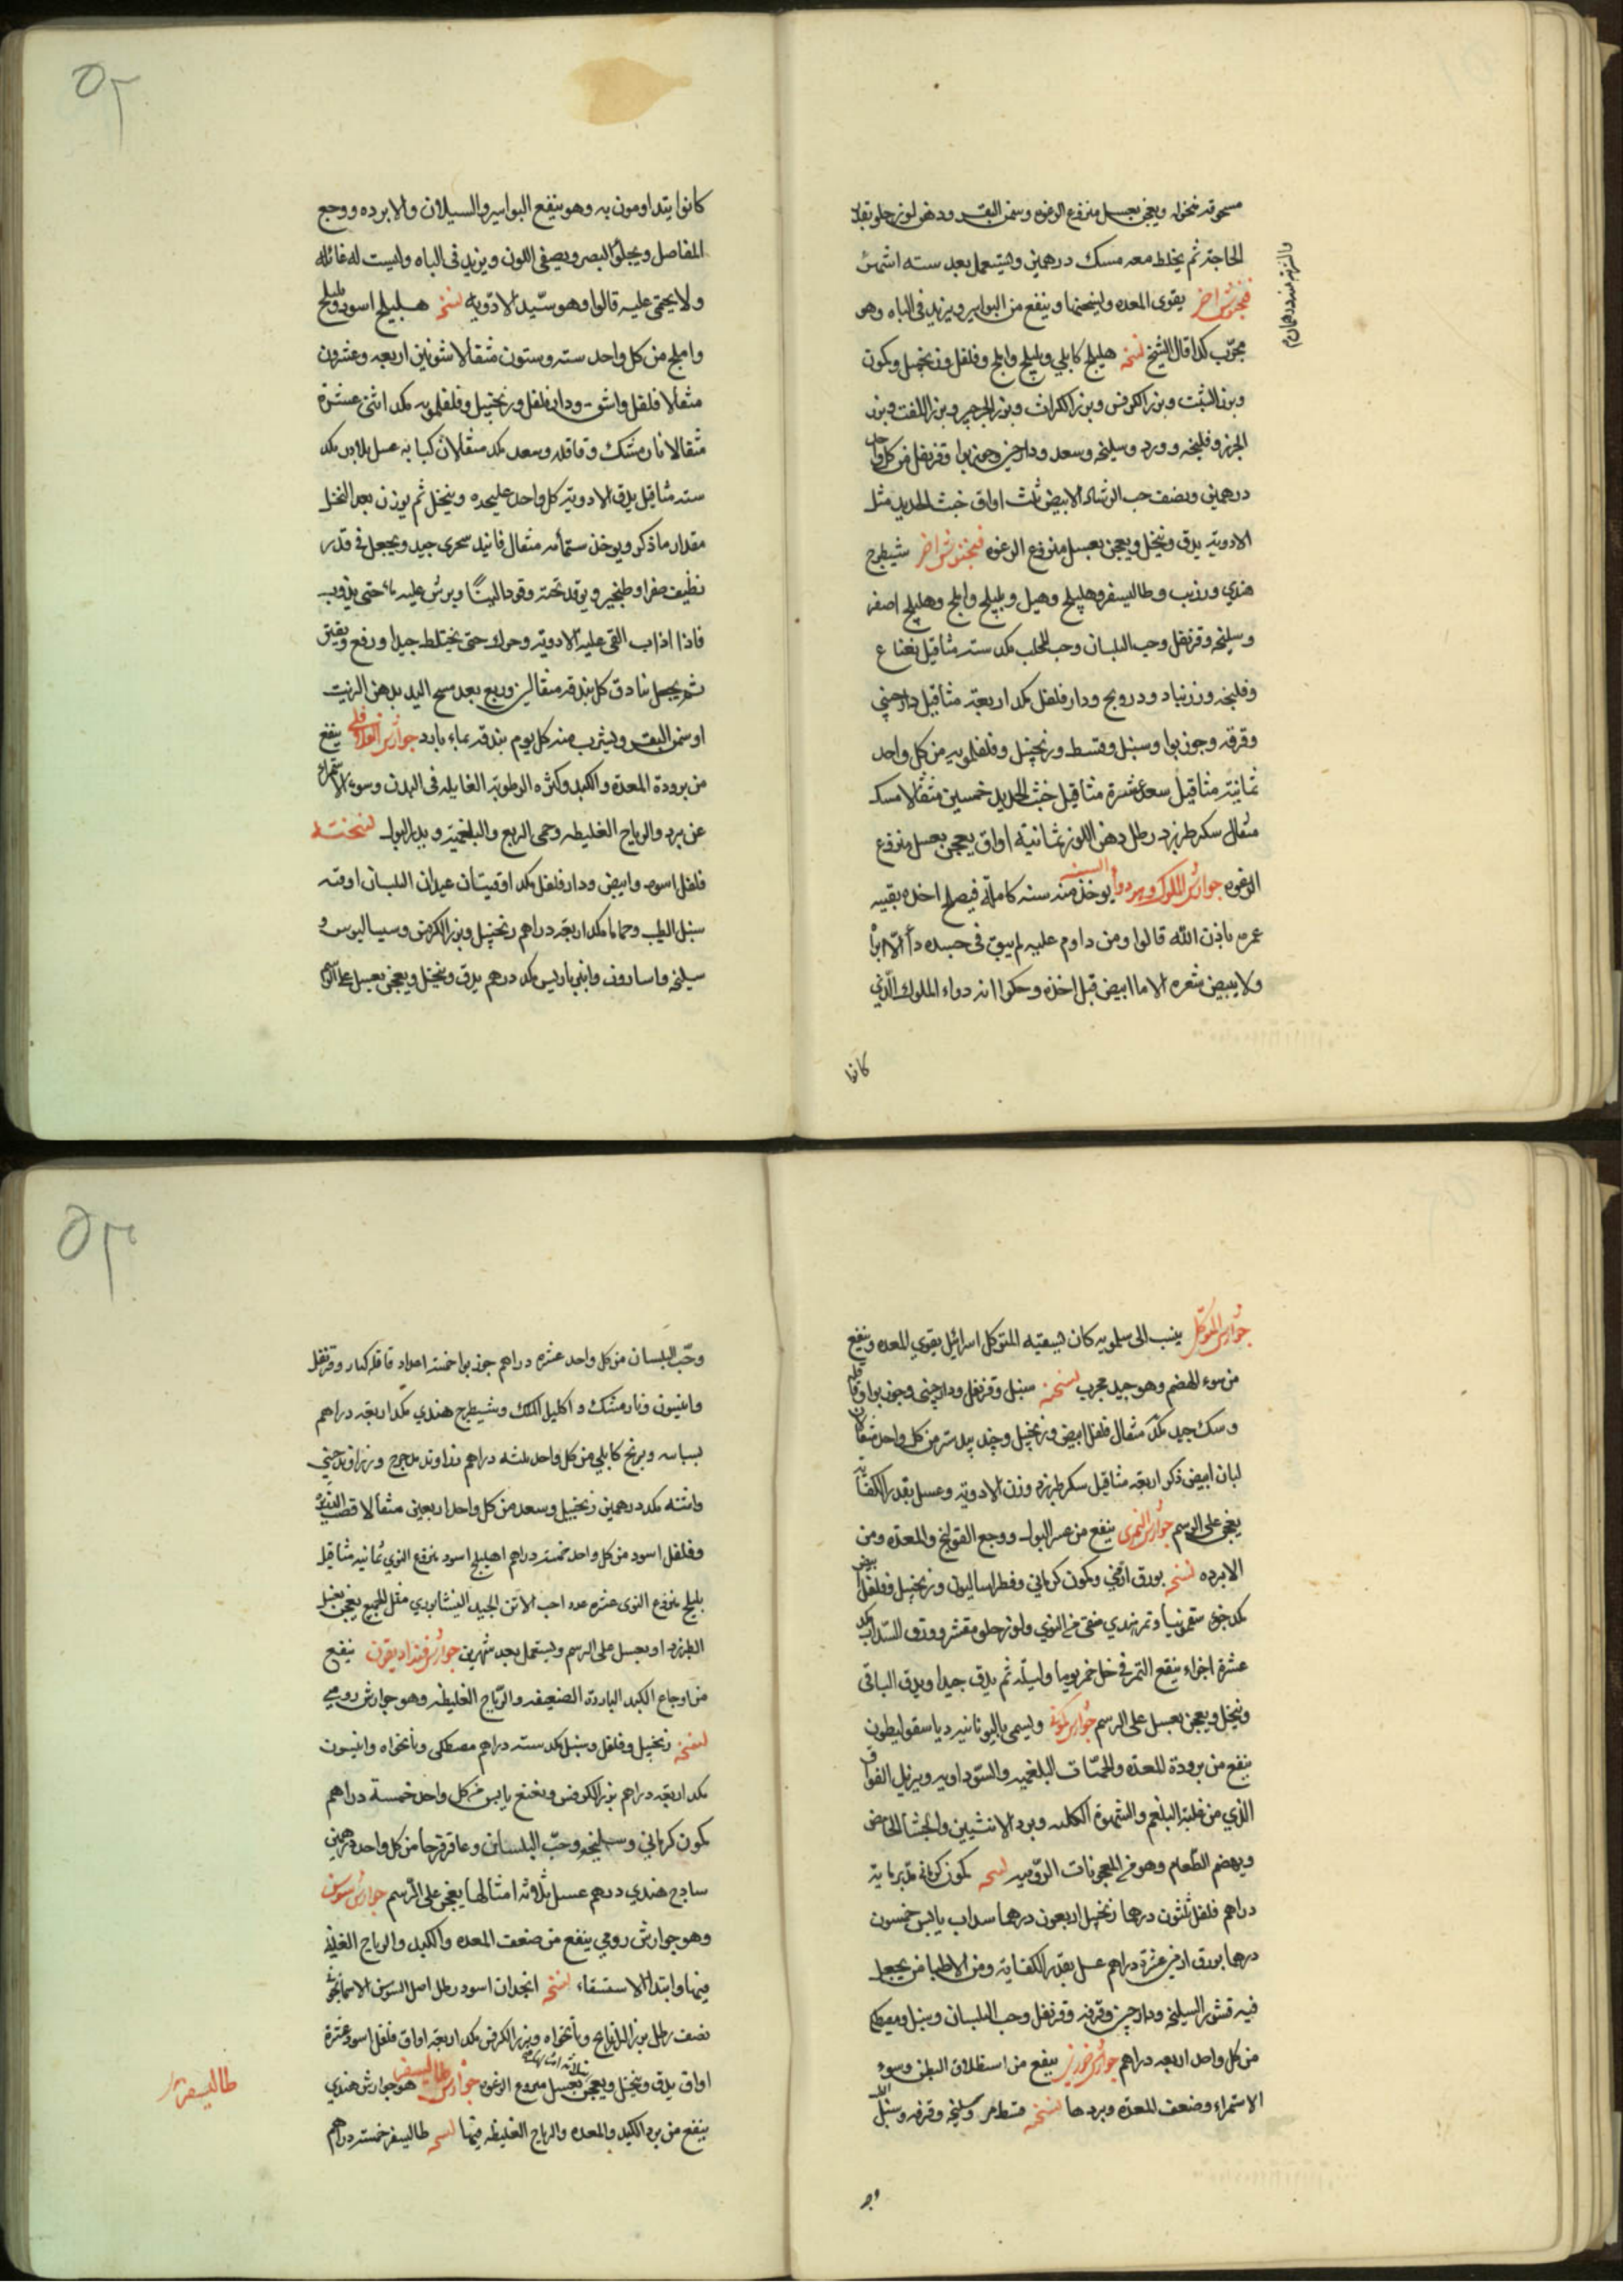 مسحوقه منخوله ويعجن بعسل منزوع الرغوه وسمن البقر ودهن لوز حلو بقدر
الحاجة ثم يخلط معه مسك درهمين ويستعمل بعد سته اشهر
فنجنوش اخر يقوى المعده ويسخنها وينفع من البواسير ويزيد فى الباه وهو
مجرّب كذا قال الشيخ نسخه هليلج كابلي وبليلج واملج وفلفل وزنجبيل وكمون
وبزر الشبت وبزر الكرفس وبزر الكراث وبزر الجرجير وبزر اللفت وبزر
الجزر وفلنجه وورد وسليخه وسعد ودارچينى وجوزبوا وقرنفل من كل واحد
درهمين ونصف حب الرشاد الابيض ثلث اواق خبث الحديد مثل
الادوية يدق وينخل ويعجن بعسل منزوع الرغوه فنجنوش اخر شيطرج
هندي وزرنب وطاليسفر وهليلج وهيل وبليلج واملج وهليلج اصفر
وسليخه وقرنفل وحب البلسان وحب المحلب مكد سته مثاقيل نعناع
وفلنجه وزرنباد ودرونج ودارفلفل مكد اربعة مثاقيل دارچيني
وقرفه وجوزبوا وسنبل وقسط وزنجبيل وفلفلمويه من كل واحد
ثمانية مثاقيل سعد عشرة مثاقيل خبث الحديد خمسين مثقالا مسك
مثقال سكر طبرزد رطل دهن اللوز ثمانية اواق يعجن بعسل منزوع
الرغوه جوارش الملوك وهو دواء السنه يوخذ منه سنه كاملة فيصلح اخذه بقيه
عمره باذن الله قالوا ومن داوم عليه لم يبق فى جسده دآء الّا برأ
ولا يبيض شعره الا ما ابيض قبل اخذه وحكوا انه دواء الملوك الّذي
كانوا
٥٢
كانوا يتداومون به وهو ينفع البواسير والسيلان والابرده ووجع
المفاصل ويجلوا البصر ويصفى اللون ويزيد فى الباه وليست له غائله
ولا يحتمى عليه قالوا وهو سيّد الادويه نسخه هليلج اسود وبليلج
واملج من كل واحد سته وستون مثقالا شونيز اربعه وعشرون
مثقالا فلفل واشق ودارفلفل وزنجبيل وفلفلمويه مكد اثنى عشرة
مثقالا نارمشك وقاقله وسعد مكد مثقالان كبابه عسل بلادر مكد
سته مثاقيل يدق الادوية كل واحد عليحده وينخل ثم يوزن بعد النخل
مقدار ما ذكر ويوخذ ستمأه مثقال فانيد سحرى جيد ويجعل فى قدر
نظيف صفر او طنجير ويوقد تحته وقودا لينًا ويرش عليه ماء حتى يذوب
فاذا اذاب القى عليه الادوية وحرك حتى يختلط جيدا ورفع وبقى
ثم يجعل بنادق كل بندقه مثقالين وربع بعد مسح اليد بدهن الزيت
او سمن البقر ويشرب منه كل يوم بندقه بماء بارد جوارش الفلافلي ينفع
من برودة المعدة والكبد وكثرة الرطوبة الغايله فى البدن وسوء الاستمراء
عن برد والرياح الغليظه وحمى الربع والبلغمية ويدر البول نسخته
فلفل اسود وابيض ودارفلفل مكد اوقيتان عيدان البلسان اوقيه
سنبل الطيب وحماما مكد اربعة دراهم زنجبيل وبزر الكرفس وسيساليوس و
سليخه واسارون وانبرباريس مكد درهم يدق وينخل ويعجن بعسل على الرسم
جوارش المتوكل ينسب الى سلمويه كان يسقيه المتوكل اسرائيل يقوي المعده وينفع
من سوء الهضم وهو جيد مجرب نسخته سنبل وقرنفل ودارچينى وجوزبوا وقاقله
وسك جيد مكد مثقال فلفل ابيض وزنجبيل وجند بيدستر من كل واحد مثقالان
لبان ابيض ذكر اربعة مثاقيل سكر طبرزد وزن الادوية وعسل بقدر الكفاية
يعجن على الرسم جوارش التمرى ينفع من عسر البول ووجع القولنج والمعدة ومن
الابرده نسخه بورق ارمني وكمون كرماني وفطراساليون وزنجبيل وفلفل ابيض
مكد جزء سقمونيا وتمر هندي منقى من النوي ولوز حلو مقشر وورق السداب مكد
عشرة اجزاء ينقع التمر في خل خمر يوما وليلة ثم يدق جيدا ويدق الباقى
وينخل ويعجن بعسل على الرسم جوارش كمونى ويسمى باليونانيه دياسقوليطون
ينفع من برودة المعدة والحمّيات البلغميه والسّوداويه ويزيل الفواق
الذي من غلبة البلغم والشهوة الكلبيه وبرد الانثيين والجشأ الحامض
ويهضم الطّعام وهو من المعجونات الرّوميه نسخه كمون كرمانى مدبر مايه
دراهم فلفل ثلثون درهما زنجبيل اربعون درهما سداب يابس خمسون
درهما بورق ارمنى عشرة دراهم عسل بقدر الكفاية ومن الاطبا من يجعل
فيه قشور السليخه ودارچينى وقرفه وقرنفل وحب البلسان وسنبل ومصطكى
من كل واحد اربعه دراهم جوارش خوزى ينفع من استطلاق البطن وسوء
الاستمراء وضعف المعدة وبردها نسخه قسط مر وسليخه وقرفه وسنبل
٥٣
وحّب البلسان من كل واحد عشره دراهم جوزبوا خمسة اعداد قاقله كبار وقرنفل
وانيسون ونارمشك واكليل الملك وشيطرج هندي مكد اربعة دراهم
بسباسه وبرنج كابلي من كل واحد ثلثه دراهم زراوند مدحرج وزراوند چيني
واشنه مكد درهمين زنجبيل وسعد من كل واحد اربعين مثقالا قصب الذريره
وفلفل اسود من كل واحد خمسة دراهم اهليلج اسود منزوع النوي ثمانيه مثاقيل
بليلج منزوع النوى عشره عدد احب الآس الجيد النيشابوري مثل الجميع يعجن بعسل
الطبرزد او بعسل على الرسم ويستعمل بعد شهرين جوارش فنداديقون ينفع
من اوجاع الكبد الباردة الضعيفه والرّياح الغليظه وهو جوارش رومي
نسخه زنجبيل وفلفل وسنبل مكد سته دراهم مصطكى ونانخواه وانيسون
مكد اربعة دراهم بزر الكرفس ونعنع يابس من كل واحد خمسة دراهم
كمون كرماني وسليخه وحبّ البلسان وعاقرقرحا من كل واحد درهمين
ساذج هندي درهم عسل ثلاثه امثالها يعجن على الرّسم جوارش سوسن
وهو جوارش رومي ينفع من ضعف المعده والكبد والرياح الغليظه
فيها وابتدا الاستسقاء نسخه انجدان اسود رطل اصل السوسن الاسمانجونى
نصف رطل بزر الرازيانج ونانخواه وبزر الكرفس مكد اربعة اواق فلفل اسود عشرة
اواق يدق وينخل ويعجن بعسل منزوع الرغوه ثلاثة امثالها جوارش طاليسفر هو جوارش هندي
ينفع من برد الكبد والمعده والرياح الغليظه فيها نسخه طاليسفر خمسة دراهم
طاليسفر